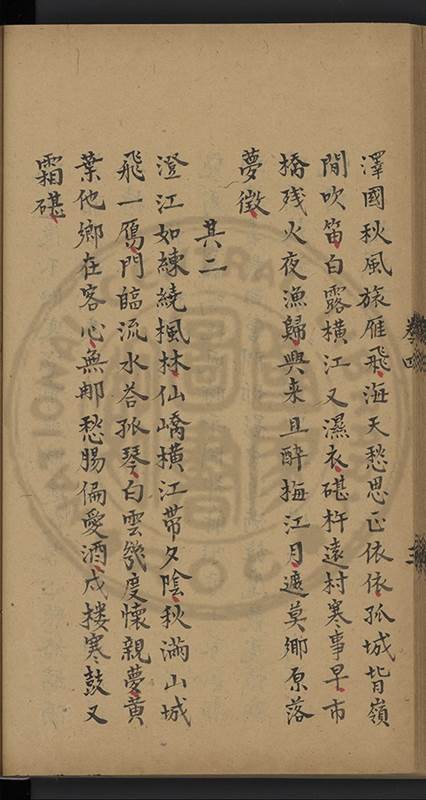 澤國秋風旅雁飛海天愁思正依依孤城皆嶺
間吹笛白露橫江又濕衣碪杵遠村寒事早市
橋残火夜漁歸興来且醉梅江月遮莫鄉原落
夢徵
其二
澄江如練繞楓林仙嶠橫江帶夕陰秋滿山城
飛一鴈門臨流水荅孤琴白雲幾度懷親夢黃
葉他鄉在客心無那愁腸偏愛酒戍楼寒鼓又
霜碪
卷四
三